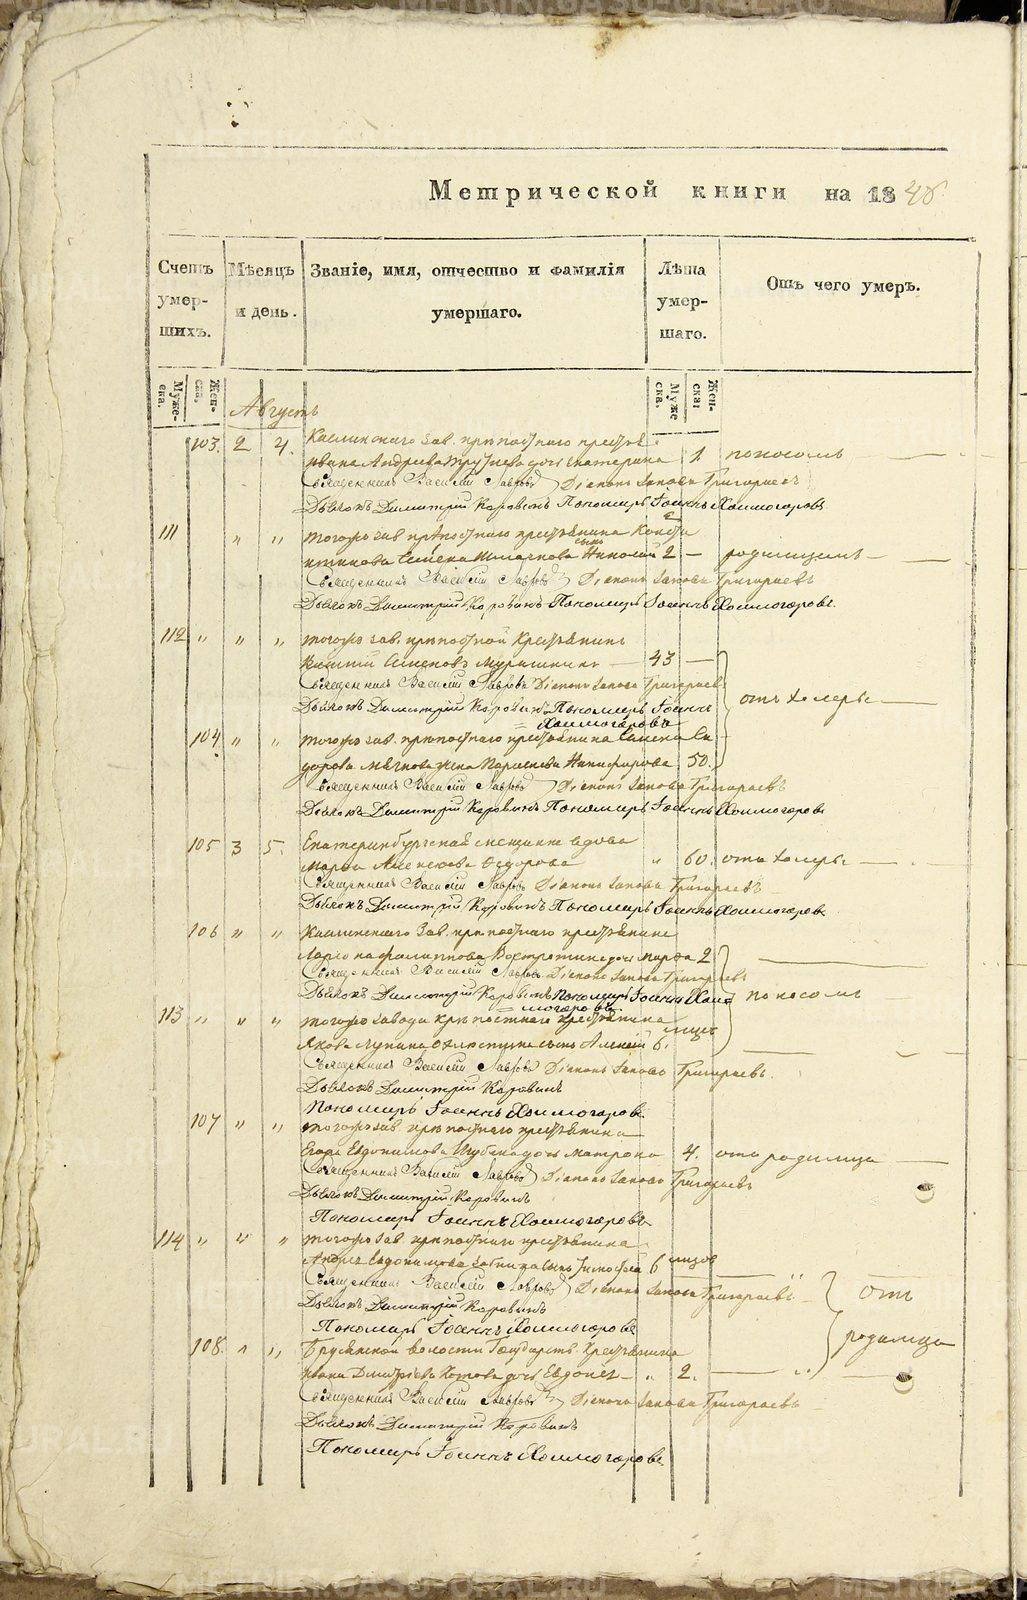 METRIKI.GASO-URAL.RU
Метрической книги на 1848
Счетъ умер-шихъ.
Мѣсяцъ и день.
Званіе, имя, отчество и фамилія умершаго.
Лѣта умер-шаго.
Отъ чего умеръ.
Муже-ска.
Жен-ска.
Муже ска.
Жен-ска:
Августъ
103. 2 4. Каслинскаго зав. крѣпостнаго крестьян
Ивана Андреева дочь Екатерина 1. поносомъ
Священникъ Василій Лавровъ Діаконъ Іаковъ Григорьевъ
Дьячокъ Димитрій Коровинъ Пономарь Іоаннъ Холмогоровъ
111 " " тогожъ зав. крѣпостнаго крестьянина Конста
нтинова сынъ Николай 2 — родимцемъ —
Священникъ Василій Лавровъ Діаконъ Іаковъ Григорьевъ
Дьячокъ Димитрій Коровинъ Пономарь Іоаннъ Холмогоровъ.
112 " " " тогожъ зав. крѣпостной крестьянинъ
Семеновъ — 43 —
Священникъ Василій Лавровъ Діаконъ Іаковъ Григорьевъ
отъ холеры
Дьячокъ Димитрій Коровинъ Пономарь Іоаннъ
Холмогоровъ
104 " " тогожъ зав. крѣпостнаго крестьянина Семена Си
дорова жена Никифорова 50.
Священникъ Василій Лавровъ Діаконъ Іаковъ Григорьевъ
Дьячокъ Димитрій Коровинъ Пономарь Іоаннъ Холмогоровъ
105 3 5. Екатеринбургская мещанка вдова
Марфа Алексеева Федорова " 60. отъ холеры —
Священникъ Василій Лавровъ Діаконъ Іаковъ Григорьевъ
Дьячокъ Димитрій Коровинъ Пономарь Іоаннъ Холмогоровъ
106 " " Каслинскаго зав. крѣпостнаго крестьянина
дочь Марфа 2
Священникъ Василій Лавровъ Діаконъ Іаковъ Григорьевъ
Дьячокъ Димитрій Коровинъ Пономарь Іоаннъ Холмогоровъ
поносомъ
113 " " " тогожъ завода крѣпостнаго крестьянина
Якова сынъ Алексей 6. мцъ
Священникъ Василій Лавровъ Діаконъ Іаковъ Григорьевъ.
Дьячокъ Димитрій Коровинъ
Пономарь Іоаннъ Холмогоровъ
107 " " тогожъ зав. крѣпостнаго крестьянина
Егора Евдокимова дочь Матрона 4. отъ родимца
Священникъ Василій Лавровъ Діаконъ Іаковъ Григорьевъ
Дьячокъ Димитрій Коровинъ
Пономарь Іоаннъ Холмогоровъ
114 " " " тогожъ зав. крѣпостнаго крестьянина
Андрея Евдокимова сынъ Тимофей 6 мцовъ
Священникъ Василій Лавровъ Діаконъ Іаковъ Григорьевъ
отъ
Дьячокъ Димитрій Коровинъ
Пономарь Іоаннъ Холмогоровъ
родимца
108. " " волости Государств. крестьянина
Ивана Дмитріева дочь " 2.
Священникъ Василій Лавровъ Діаконъ Іаковъ Григорьевъ
Дьячокъ Димитрій Коровинъ
Пономарь Іоаннъ Холмогоровъ
METRIKI.GASO-URAL.RU